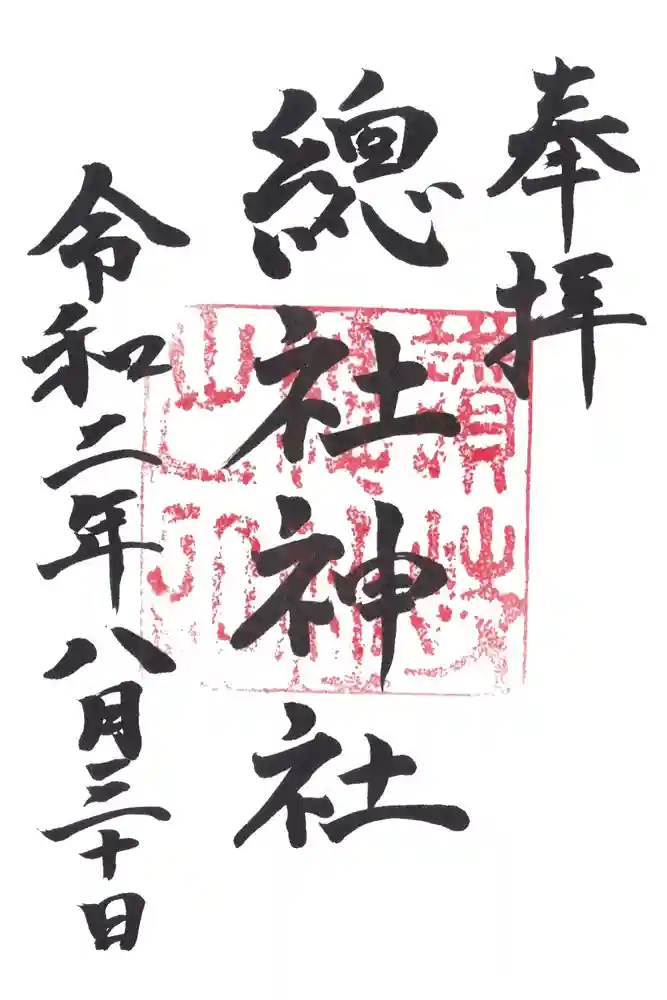 奉拝
總社神社
令和二年八月三十日